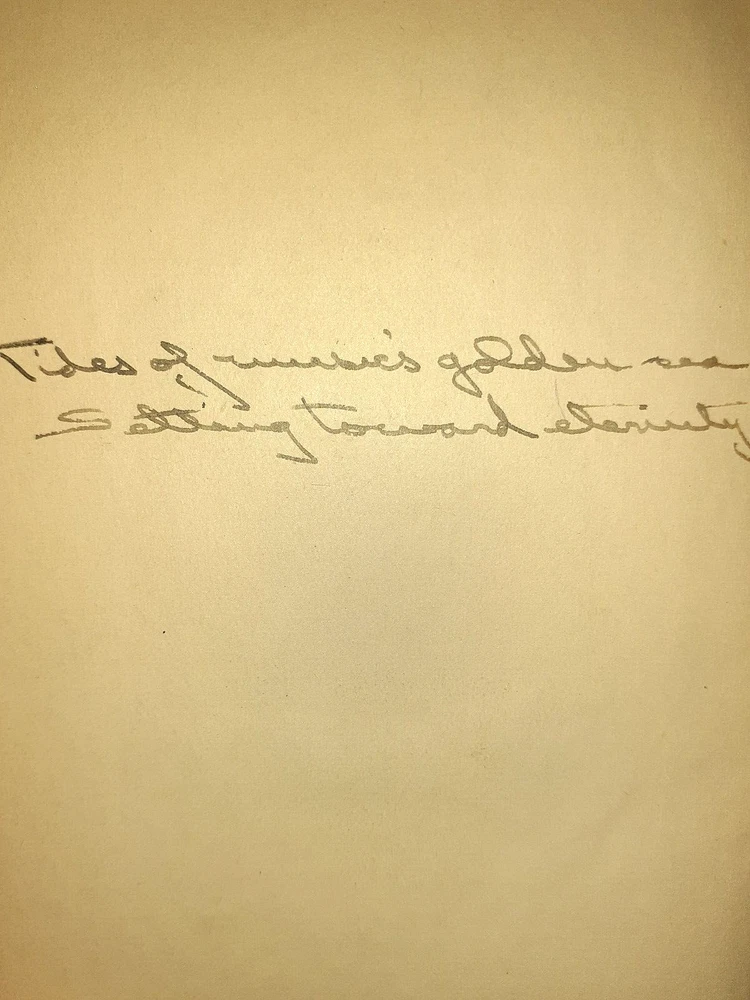 Tides of music's golden sea
Setting toward eternity